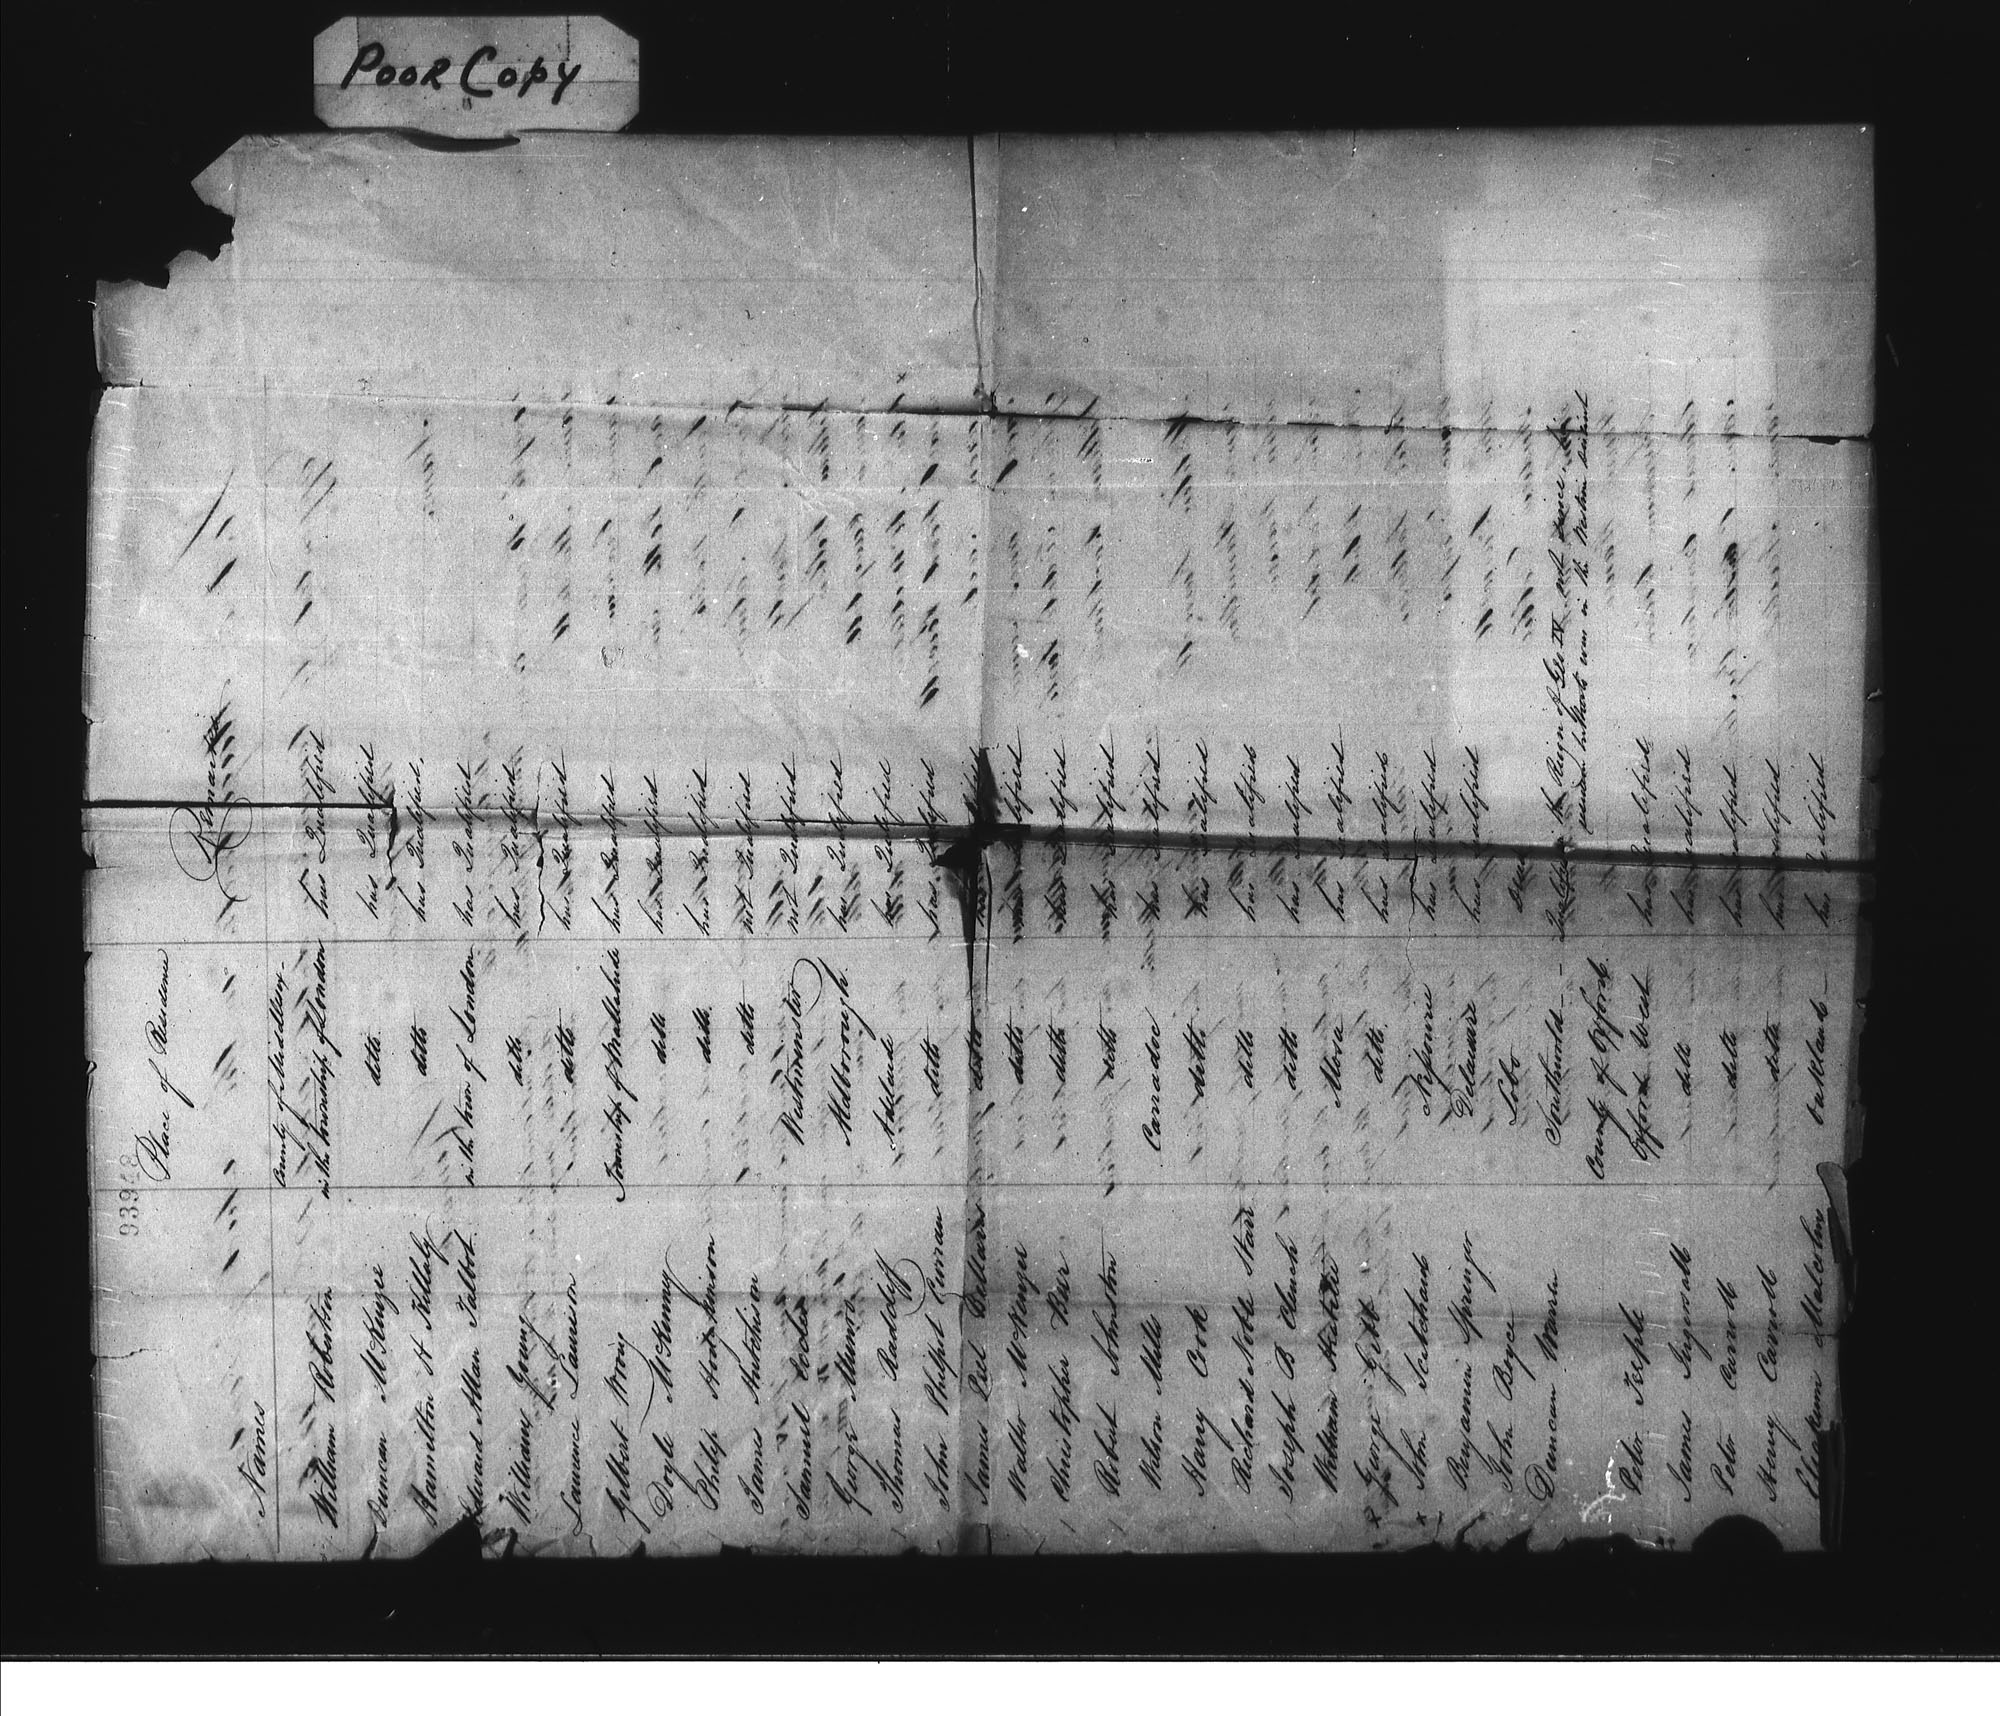 Poor Copy
93948
Names Place of Residence Remarks
County of Middlesex -
William Robertson in the township of London has Qualified
Duncan McKenzie ditto has Qualified
Hamilton H Killaly ditto has Qualified.
Edward Allen Talbot in the town of London has Qualified
William Young ditto has Qualified
Laurence Lawrason ditto has Qualified
Gilbert Wrong Township of Mallahide has Qualified
Doyle McKenny ditto has Qualified
Philip Hodgkinson ditto has Qualified
James Hutchison ditto not Qualified
Samuel Westminster not Qualified
George Munro Aldborough has Qualified
Thomas Radcliff Adelaide has Qualified
John Philpot Curran ditto has Qualified
James ditto has Qualified
Walter McKenzie ditto has Qualified
Christopher Beer ditto has Qualified
Robert Johnston ditto has Qualified
Nelson Mills Carradoc has Qualified
Harry Cook ditto has Qualified
Richard Noble Starr ditto has Qualified
Joseph B Clench ditto has Qualified
William Mosa has Qualified
x George Gibb ditto has Qualified
x John Ekfrid has Qualified
Benjamin Springer Delaware has Qualified
John Boyce Lobo
Duncan Southwold - Qualified in the Reign of Geo IV not since
in the Western District
County of Oxford
Peter Teeple Oxford West has Qualified
James Ingersoll ditto has Qualified
Peter Carroll ditto has Qualified
Henry Carroll ditto has Qualified
Malcolm Oakland - has Qualified